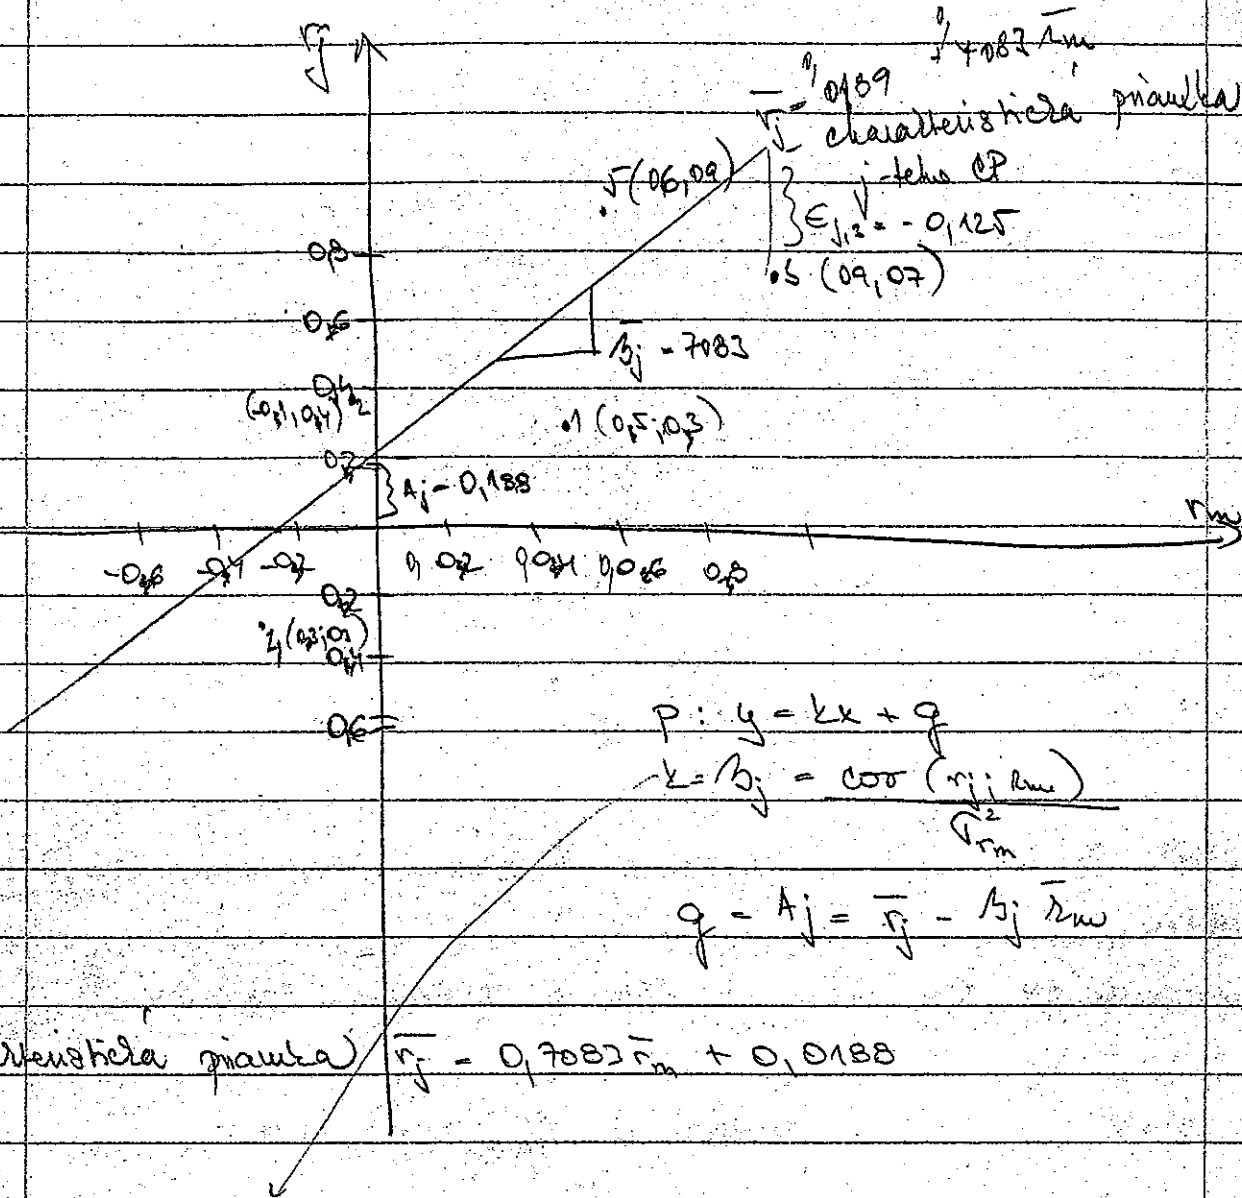 r̄j
0,7083 r̄m
r̄j = 0,0189
charakteristická priamka
j-teho CP
5 (06,09)
ϵj,3 = -0,125
0,8
.3 (09,07)
0,6
βj = 7083
0,4
(-0,1, 0,4) 2
.1 (0,5; 0,3)
0,2
Aj = 0,188
rm
-0,6 -0,4 -0,2 0,2 0,4 0,6 0,8
0,2
4
0,4
0,6
p: y = kx + q
k = βj = cov (rj; rm)
σ²rm
q = Aj = r̄j - βj r̄m
priamka r̄j = 0,7083 r̄m + 0,0188